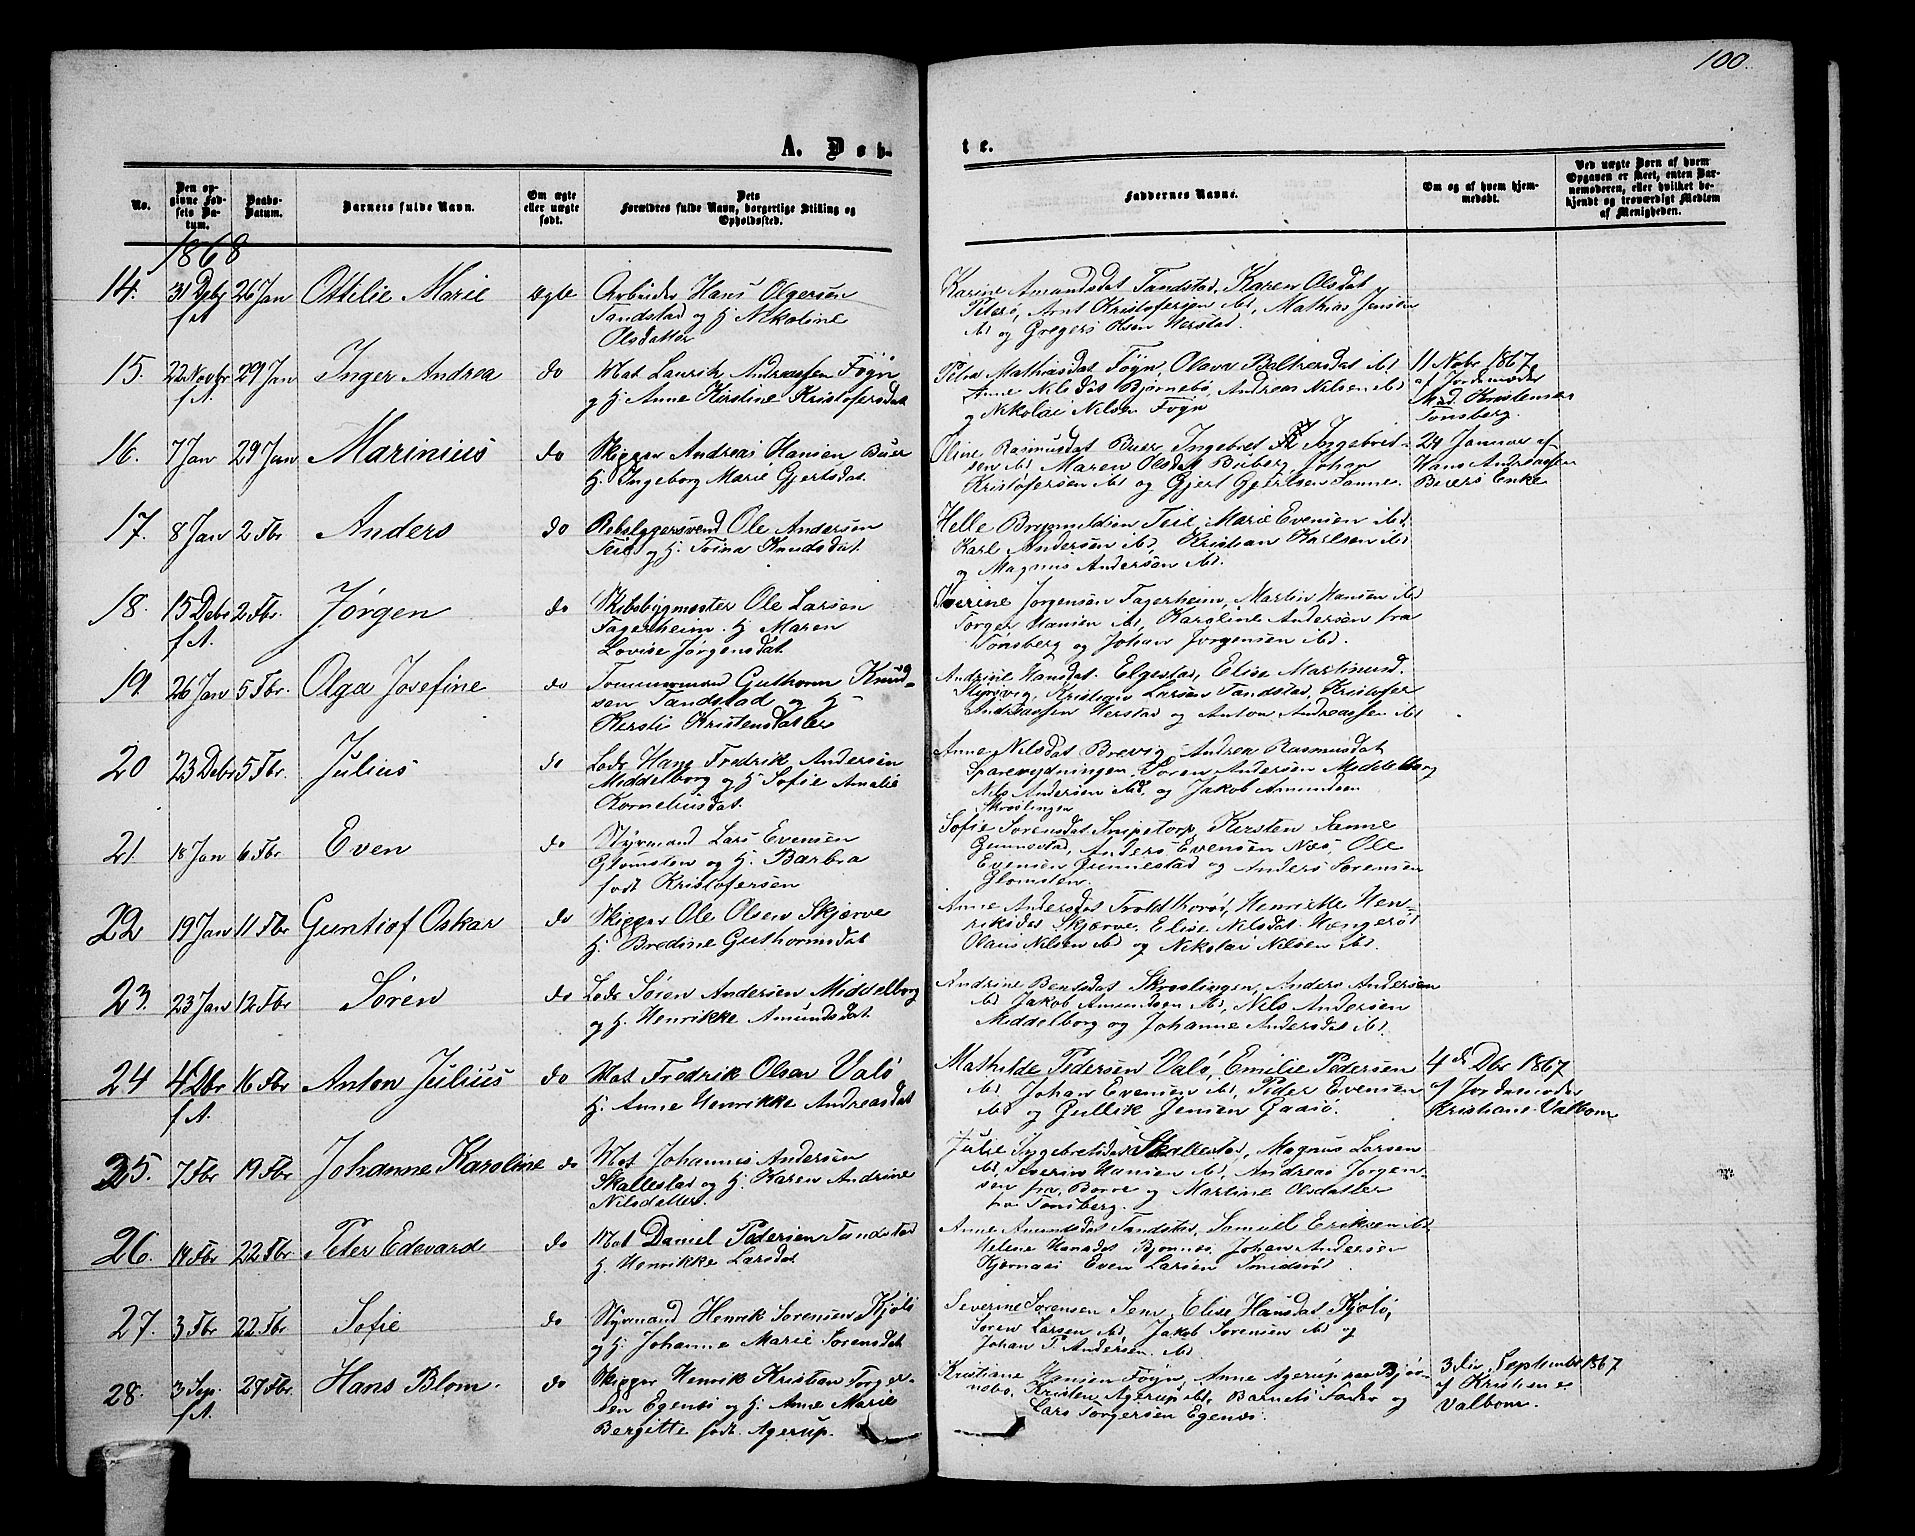 100.
A. Døb-
te.
No.
Den op-
givne Fød-
sels Da-
tum.
Daabs-
Datum.
Barnets fulde Navn.
Om ægte
eller uægte
født.
Dets
Forældres fulde Navn, borgerlige Stilling og
Opholdssted.
Faddernes Navne.
Om og af hvem hjem-
medøbt.
Ved uægte Børn af hvem
Opgaven er skeet, enten Bar-
nemoderen, eller hvilket be-
kjendt og troværdigt Medlem
af Menigheden.
1868
14. 31 Debr 26 Jan Ottilie Marie ægte Arbeider Hans Olgersen
f A Tandstad og H. Nikoline
Olsdatter
Karine Amundsdat Tandstad, Karen Olsdat
Peterø, Arnt Kristofersen ibd, Mathias Jensen
ibd og Gregers Olsen Herstad.
15. 22 Novbr 29 Jan Inger Andrea do Mat Lauritz Andreassen Føgn
f A. og H. Anne Kirstine Kristofersdat
Petra Mathiasdat Føgn, Olava Baltzersdat ibd
Anne Nilsdat Bjørnebø, Andreas Nilsen ibd
og Nikolai Nilsen Føgn
11 Nobr 1867
af Jordemoder
Mad. Kristensen
Tønsberg.
16. 7 Jan 29 Jan Marinius do Skipper Andreas Hansen Buer
H. Ingeborg Marie Gjertsdat.
Oline Rasmusdat Buer, Ingebret Ingebret-
sen ibd Maren Olsdat Buberg, Johan
Kristofersen ibd og Gjert Gjertsen Sanne.
24 Januar af
Hans Andreassen
Buers Enke
17. 8 Jan 2 Fbr Anders do Rebslagersvend Ole Andersen
Teie og H. Trina Knudsdat.
Helle Brynnildsen Teie, Marie Evensen ibd,
Karl Andersen ibd, Kristian Karlsen ibd
og Magnus Andersen ibd.
18. 15 Debr 2 Fbr. Jørgen do Skibsbygmester Ole Larsen
f A. Fagerheim. H Maren
Lovise Jørgensdat.
Jørgensen Fagerheim, Martin Hansen ibd
Torger Hansen ibd, Karoline Andersen fra
Tønsberg og Johan Jørgensen ibd.
19. 26 Jan 5 Fbr. Olga Josefine do Tømmermand Guthorm Knud-
sen Tandstad og H-
Kersti Kristensdatter
Andrine Hansdat. Elgestad, Elise Martinusd.
Kristian Larsen Tandstad, Kristofer
Andreassen Herstad og Anton Andreassen ibd
20 23 Debr 5 Fbr. Julius do Lods Hans Fredrik Andersen
Middelborg og H Sofie Amalie
Korneliusdat.
Anne Nilsdat Brevig, Andrea Rasmusdat
Søren Andersen Middelborg
Nils Andersen ibd, og Jakob Amundsen
Skrøslingen
21. 18 Jan 6 Fbr Even do Styrmand Lars Evensen
Glomsten og H. Barbra
født Kristofersen
Sofie Sørensdat Snipetorp, Kirsten Sanne
Gunnestad, Anders Evensen Næs, Ole
Evensen Gunnestad og Anders Sørensen
Glomsten.
22 19 Jan 11 Fbr Guntiof Oskar do Skipper Ole Olsen Skjærve
H. Bredine Guthormsdat
Anne Andersdat Henriette Hen-
riksdat Skjærve, Elise Nilsdat.
Olaus Nilsen ibd og Nikolai Nilsen ibd.
23. 23 Jan 12 Fbr Søren do Lods Søren Andersen Middelborg
og H. Henrikke Amundsdat.
Andrine Bentsdat Skrøslingen, Anders Andersen
ibd Jakob Amundsen ibd, Nils Andersen
Middelborg og Johanne Andersdat ibd.
24 4 Dbr 16 Fbr Anton Julius do Mat Fredrik Olsen Valø
f A. H. Anne Henrikke Andreasdat
Mathilde Pedersen Valø, Emilie Pedersen
ibd Johan Evensen ibd, Peder Evensen
ibd og Gullik Jensen Gaasø.
4de Dbr 1867
af Jordemoder
Kristiane Valbom
25. 7 Fbr 19 Fbr Johanne Karoline do Mat Johannes Andersen
Skallestad og H. Karen Andrine
Nilsdatter.
Julie Ingebretsdat Skallestad, Magnus Larsen
ibd Severin Hansen ibd, Andreas Jørgen-
sen fra Borre og Martine Olsdatter
fra Tønsberg.
26. 14 Fbr 22 Fbr Peter Edevard do Mat Daniel Pedersen Tandstad
H. Henrikke Larsdat.
Anne Amundsdat Tandstad, Samuel Eriksen ibd
Helene Hansdat Bjønnes, Johan Andersen
Kjærnaas Even Larsen Smidsrød.
27. 3 Fbr 22 Fbr Sofie do Styrmand Henrik Sørensen Kjølø
og H. Johanne Marie Sørensdat
Severine Sørensen Sem, Elise Hansdat Kjølø,
Søren Larsen ibd, Jakob Sørensen ibd og
Johan T. Andersen ibd.
28. 3 Sep. 27 Fbr. Hans Blom. do Skipper Henrik Kristian Torger-
f A. sen Egenes og H. Anne Marie
Bergitte født Agerup.
Kristiane Hansen Føgn, Anne Agerup paa Bjør-
nebø, Kristen Agerup ibd, Barnets Fader og
Lars Torgersen Egenes.
3die September 1867
af Kristiane
Valbom.